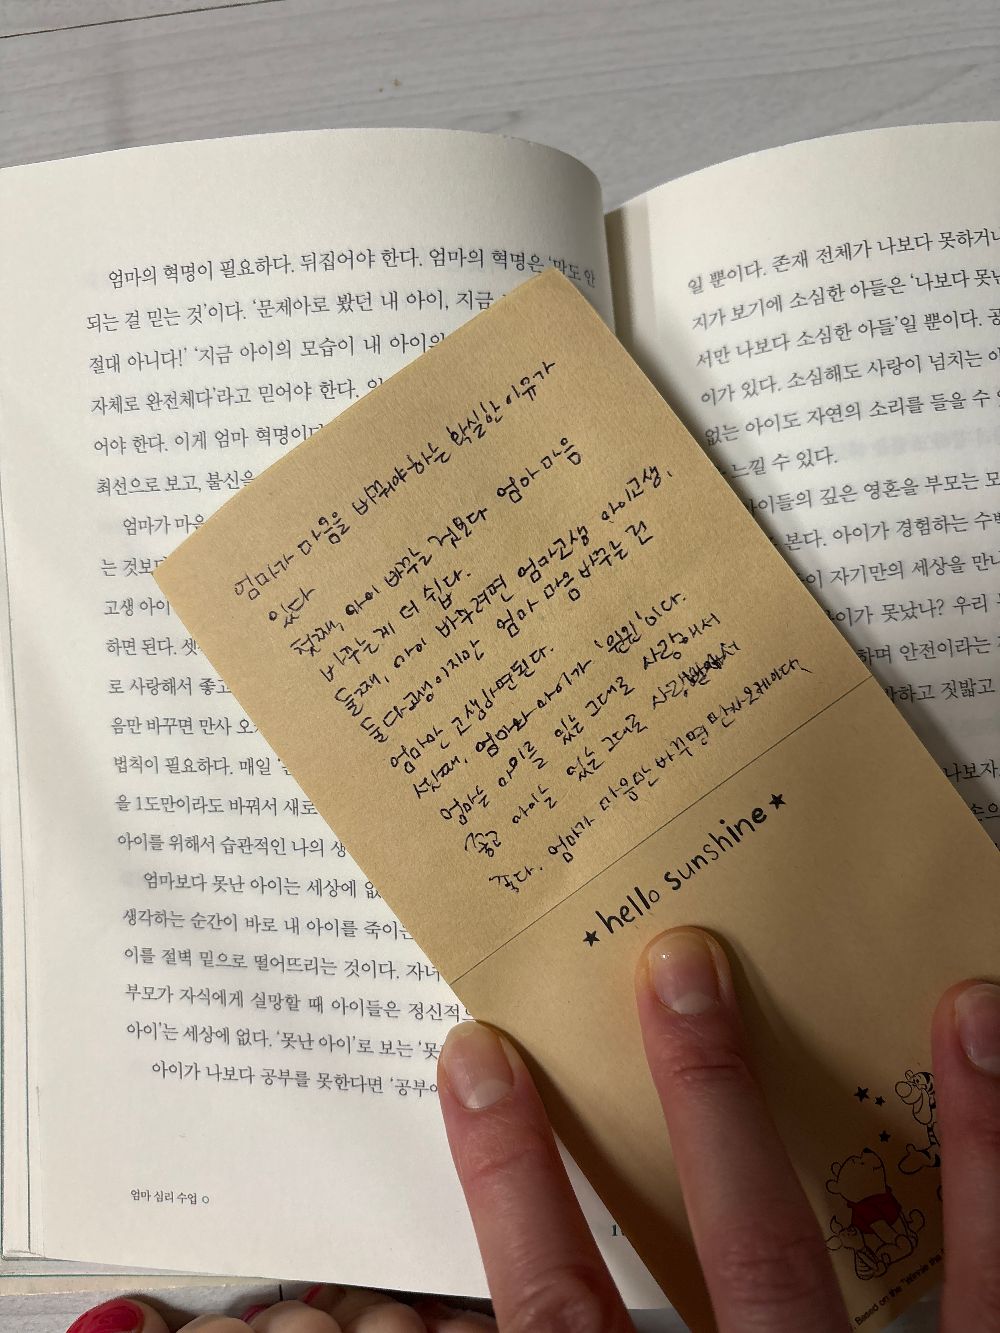 엄마의 혁명이 필요하다. 뒤집어야 한다. 엄마의 혁명은 '말도 안
되는 걸 믿는 것'이다. '문제아로 봤던 내 아이, 지금
절대 아니다!' '지금 아이의 모습이 내 아이의
자체로 완전체다'라고 믿어야 한다.
어야 한다. 이게 엄마 혁명이다
최선으로 보고, 불신을
엄마가 마음
는 것보다
고생 아이
하면 된다. 셋
로 사랑해서 좋고
음만 바꾸면 만사 오
법칙이 필요하다. 매일
을 1도만이라도 바꿔서 새로
아이를 위해서 습관적인 나의 생
엄마보다 못난 아이는 세상에 없
생각하는 순간이 바로 내 아이를 죽이는
이를 절벽 밑으로 떨어뜨리는 것이다. 자녀
부모가 자식에게 실망할 때 아이들은 정신적으
아이'는 세상에 없다. '못난 아이'로 보는 '못
아이가 나보다 공부를 못한다면 '공부
엄마 심리 수업
엄마가 마음을 바꿔야하는 확실한 이유가
있다
첫째, 아이 바꾸는 것보다 엄마 마음
바꾸는게 더 쉽다.
둘째, 아이 바꾸려면 엄마고생 아이고생,
둘다고생이지만 엄마 마음 바꾸는 건
엄마만 고생하면된다.
셋째, 엄마와 아이가 '윈윈'이다.
엄마는 아이를 있는 그대로 사랑해서
좋고 아이는 있는 그대로 사랑받아서
좋다. 엄마가 마음만 바꾸면 만사오케이다.
★hello sunshine★
Based on the "Winnie the
일 뿐이다. 존재 전체가 나보다 못하거나
지가 보기에 소심한 아들은 '나보다 못난
서만 나보다 소심한 아들'일 뿐이다. 공
이가 있다. 소심해도 사랑이 넘치는 아
없는 아이도 자연의 소리를 들을 수 있
느낄 수 있다.
아이들의 깊은 영혼을 부모는 모
본다. 아이가 경험하는 수많
이 자기만의 세상을 만나
아이가 못났나? 우리
하며 안전이라는
하고 짓밟고
나보자.